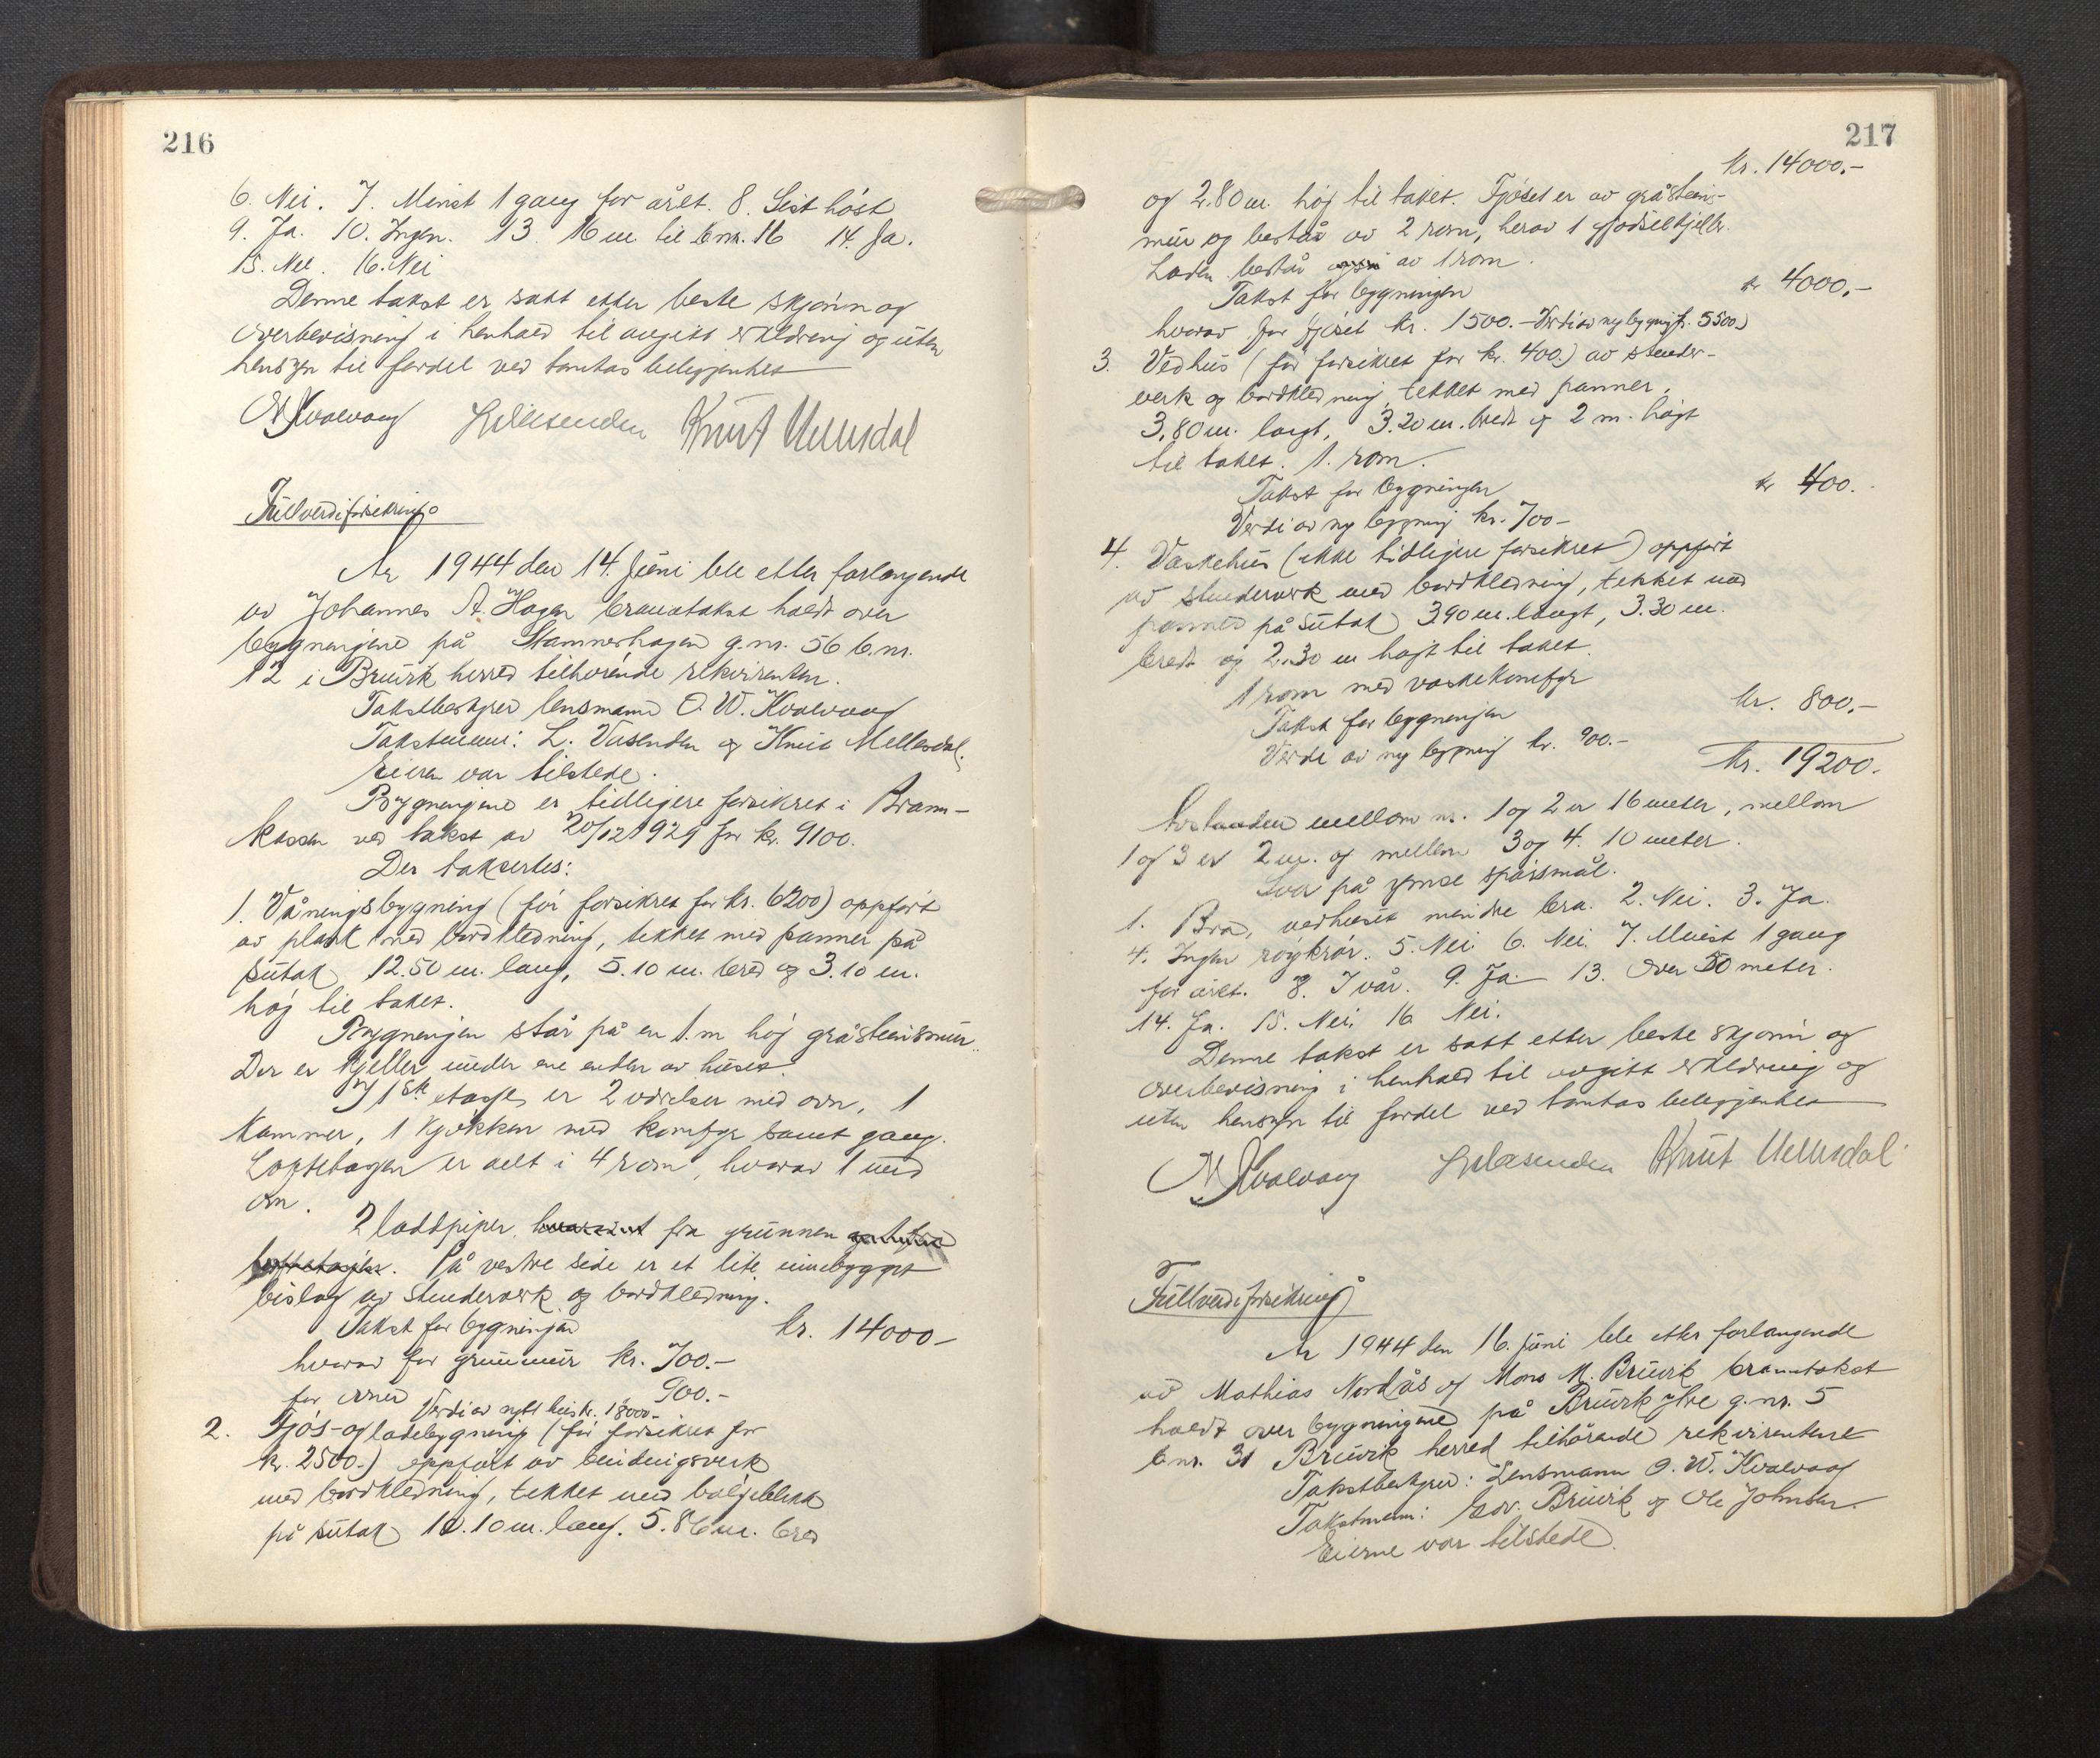 216
6. Nei. 7. Minst 1 gang for året. 8. Sist høst
9. Ja. 10. Ingen. 13. 16 m. til b.nr. 16 14. Ja.
15. Nei. 16. Nei
Denne takst er satt etter beste skjønn og
overbevisning i henhold til avgitt erklæring og uten
hensyn til fordel ved tomtas beliggenhet
O W Kvalvaag L. Vasenden Knut Mellesdal
Fullverdiforsikring.
År 1944 den 14. juni ble etter forlangende
av Johannes A. Hagen branntakst holdt over
bygningene på Stamneshagen g.nr. 56 b.nr.
12 i Bruvik herred tilhørende rekvirenten.
Takstbestyrer lensmann O. W. Kvalvaag
Takstmenn: L. Vasenden og Knut Mellesdal.
Eieren var tilstede.
Bygningene er tidligere forsikret i Brann-
kassen ved takst av 20/12 1929 for kr. 9100.
Der taksertes:
1. Våningsbygning (før forsikret for kr. 6200) oppført
av plank med bordkledning, tekket med panner på
sutak, 12.50 m. lang, 5.10 m. bred og 3.10 m.
høg til taket.
Bygningen står på en 1. m høg gråsteinsmur.
Der er kjeller under ene enden av huset.
I 1ste etasje er 2 værelser med ovn, 1
kammer, 1 kjøkken med komfyr samt gang.
Loftetagen er delt i 4 rom, hvorav 1 med
ovn.
2 loddpiper, hvorav fra grunnen
loftetasjen. På vestre side er et lite innebygget
bislag av stenderverk og bordkledning.
Takst for bygningen kr. 14000-
hvorav for grunnmur kr. 700.-
for ovner 900.-
Verdi av nytt hus kr. 18000.-
2. Fjøs- og løebygning (før forsikret for
kr. 2500.-) oppført av bindingsverk
med bordkledning, tekket med bølgeblikk
på sutak 10.10 m. lang. 5.86 m. bred
217
kr. 14000.-
og 2.80 m. høg til taket. Fjøset er av gråsteins-
mur og består av 2 rom, herav 1 gjødselkjeller.
Løden består av 1 rom.
Takst for bygningen kr 4000.-
hvorav for fjøset kr. 1500.- Verdi av ny bygning kr. 5500.)
3. Vedhus (før forsikret for kr. 400.) av stender-
verk og bordkledning, tekket med panner,
3.80 m. langt, 3.20 m. bredt og 2 m. høgt
til taket. 1. rom.
Takst for bygningen kr 400.
Verdi av ny bygning kr. 700-
4. Vaskehus (ikke tidligere forsikret) oppført
av stenderverk med bordkledning, tekket med
panner på sutak 3.90 m. langt, 3.30 m.
bredt og 2.30 m høgt til taket.
1 rom med vaskekomfyr
Takst for bygningen kr. 800.-
Verdi av ny bygning kr. 900.-
kr. 19200.
Avstanden mellom nr. 1 og 2 er 16 meter, mellom
1 og 3 er 2 m. og mellem 3 og 4. 10 meter.
Svar på ymse spørsmål.
1. Bra, vedhuset mindre bra. 2. Nei. 3. Ja.
4. Ingen røykrør. 5. Nei. 6. Nei. 7. Minst 1 gang
for året. 8. I vår. 9. Ja. 13. Over 50 meter.
14. Ja. 15. Nei. 16 Nei.
Denne takst er satt etter beste skjønn og
overbevisning i henhold til avgitt erklæring og
uten hensyn til fordel ved tomtas beliggenhet
O W Kvalvaag L. Vasenden Knut Mellesdal
Fullverdiforsikring
År 1944 den 16. juni ble etter forlangende
av Mathias Nordås og Mons M. Bruvik branntakst
holdt over bygningene på Bruvik ytre g.nr. 5
b.nr. 31 Bruvik herred tilhørende rekvirentene
Takstbestyrer: Lensmann O. W. Kvalvaag
Takstmenn: Edv. Bruvik og Ole Johnsen.
Eierne var tilstede.